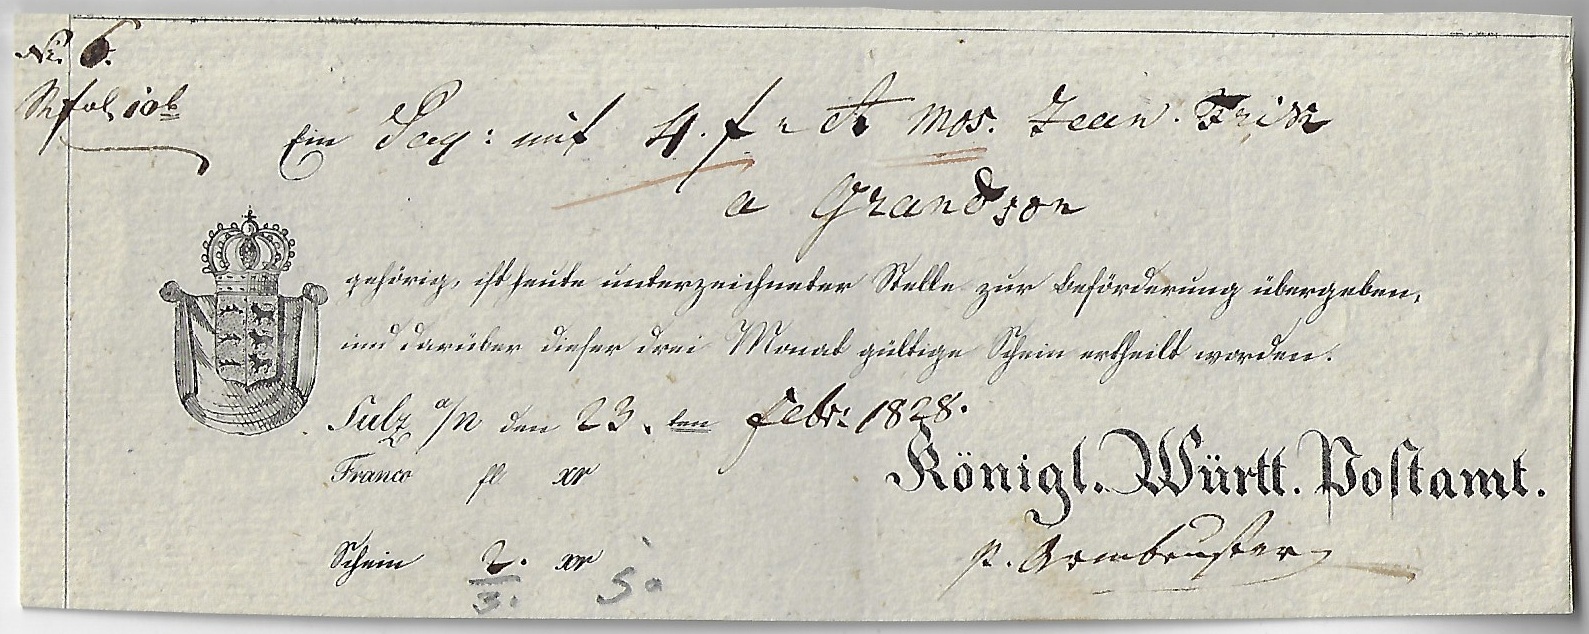 No. 6.
fol. 106
Ein Paq: mit 4. f = A Mos. Jean. Friz
a Grandson
gehörig, ist heute unterzeichneter Stelle zur Beförderung übergeben,
und darüber dieser drei Monat gültige Schein ertheilt worden.
Sulz a/N den 23. ten Febr: 1828.
Franco fl xr
Königl. Württ. Postamt.
Schein 2. xr
3. 50
Armbruster